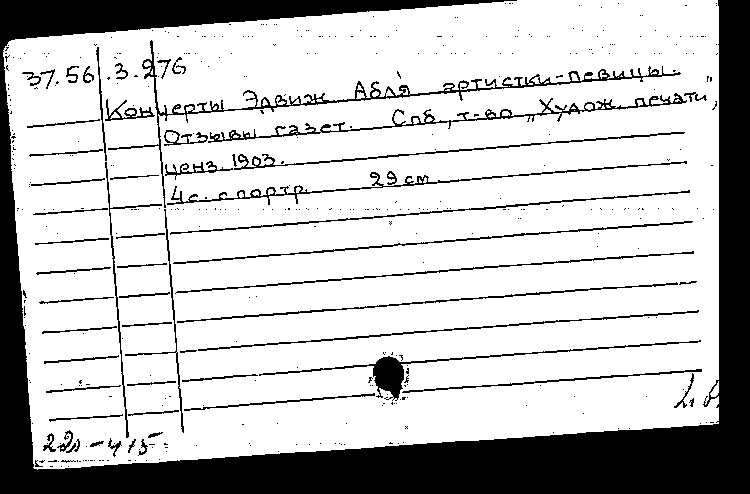 37.56.3.276
Концерты Эдвиж Абля́ артистки-певицы.
Отзывы газет. Спб., т-во „Худож. печати",
ценз. 1903.
4с. с портр. 29 см.